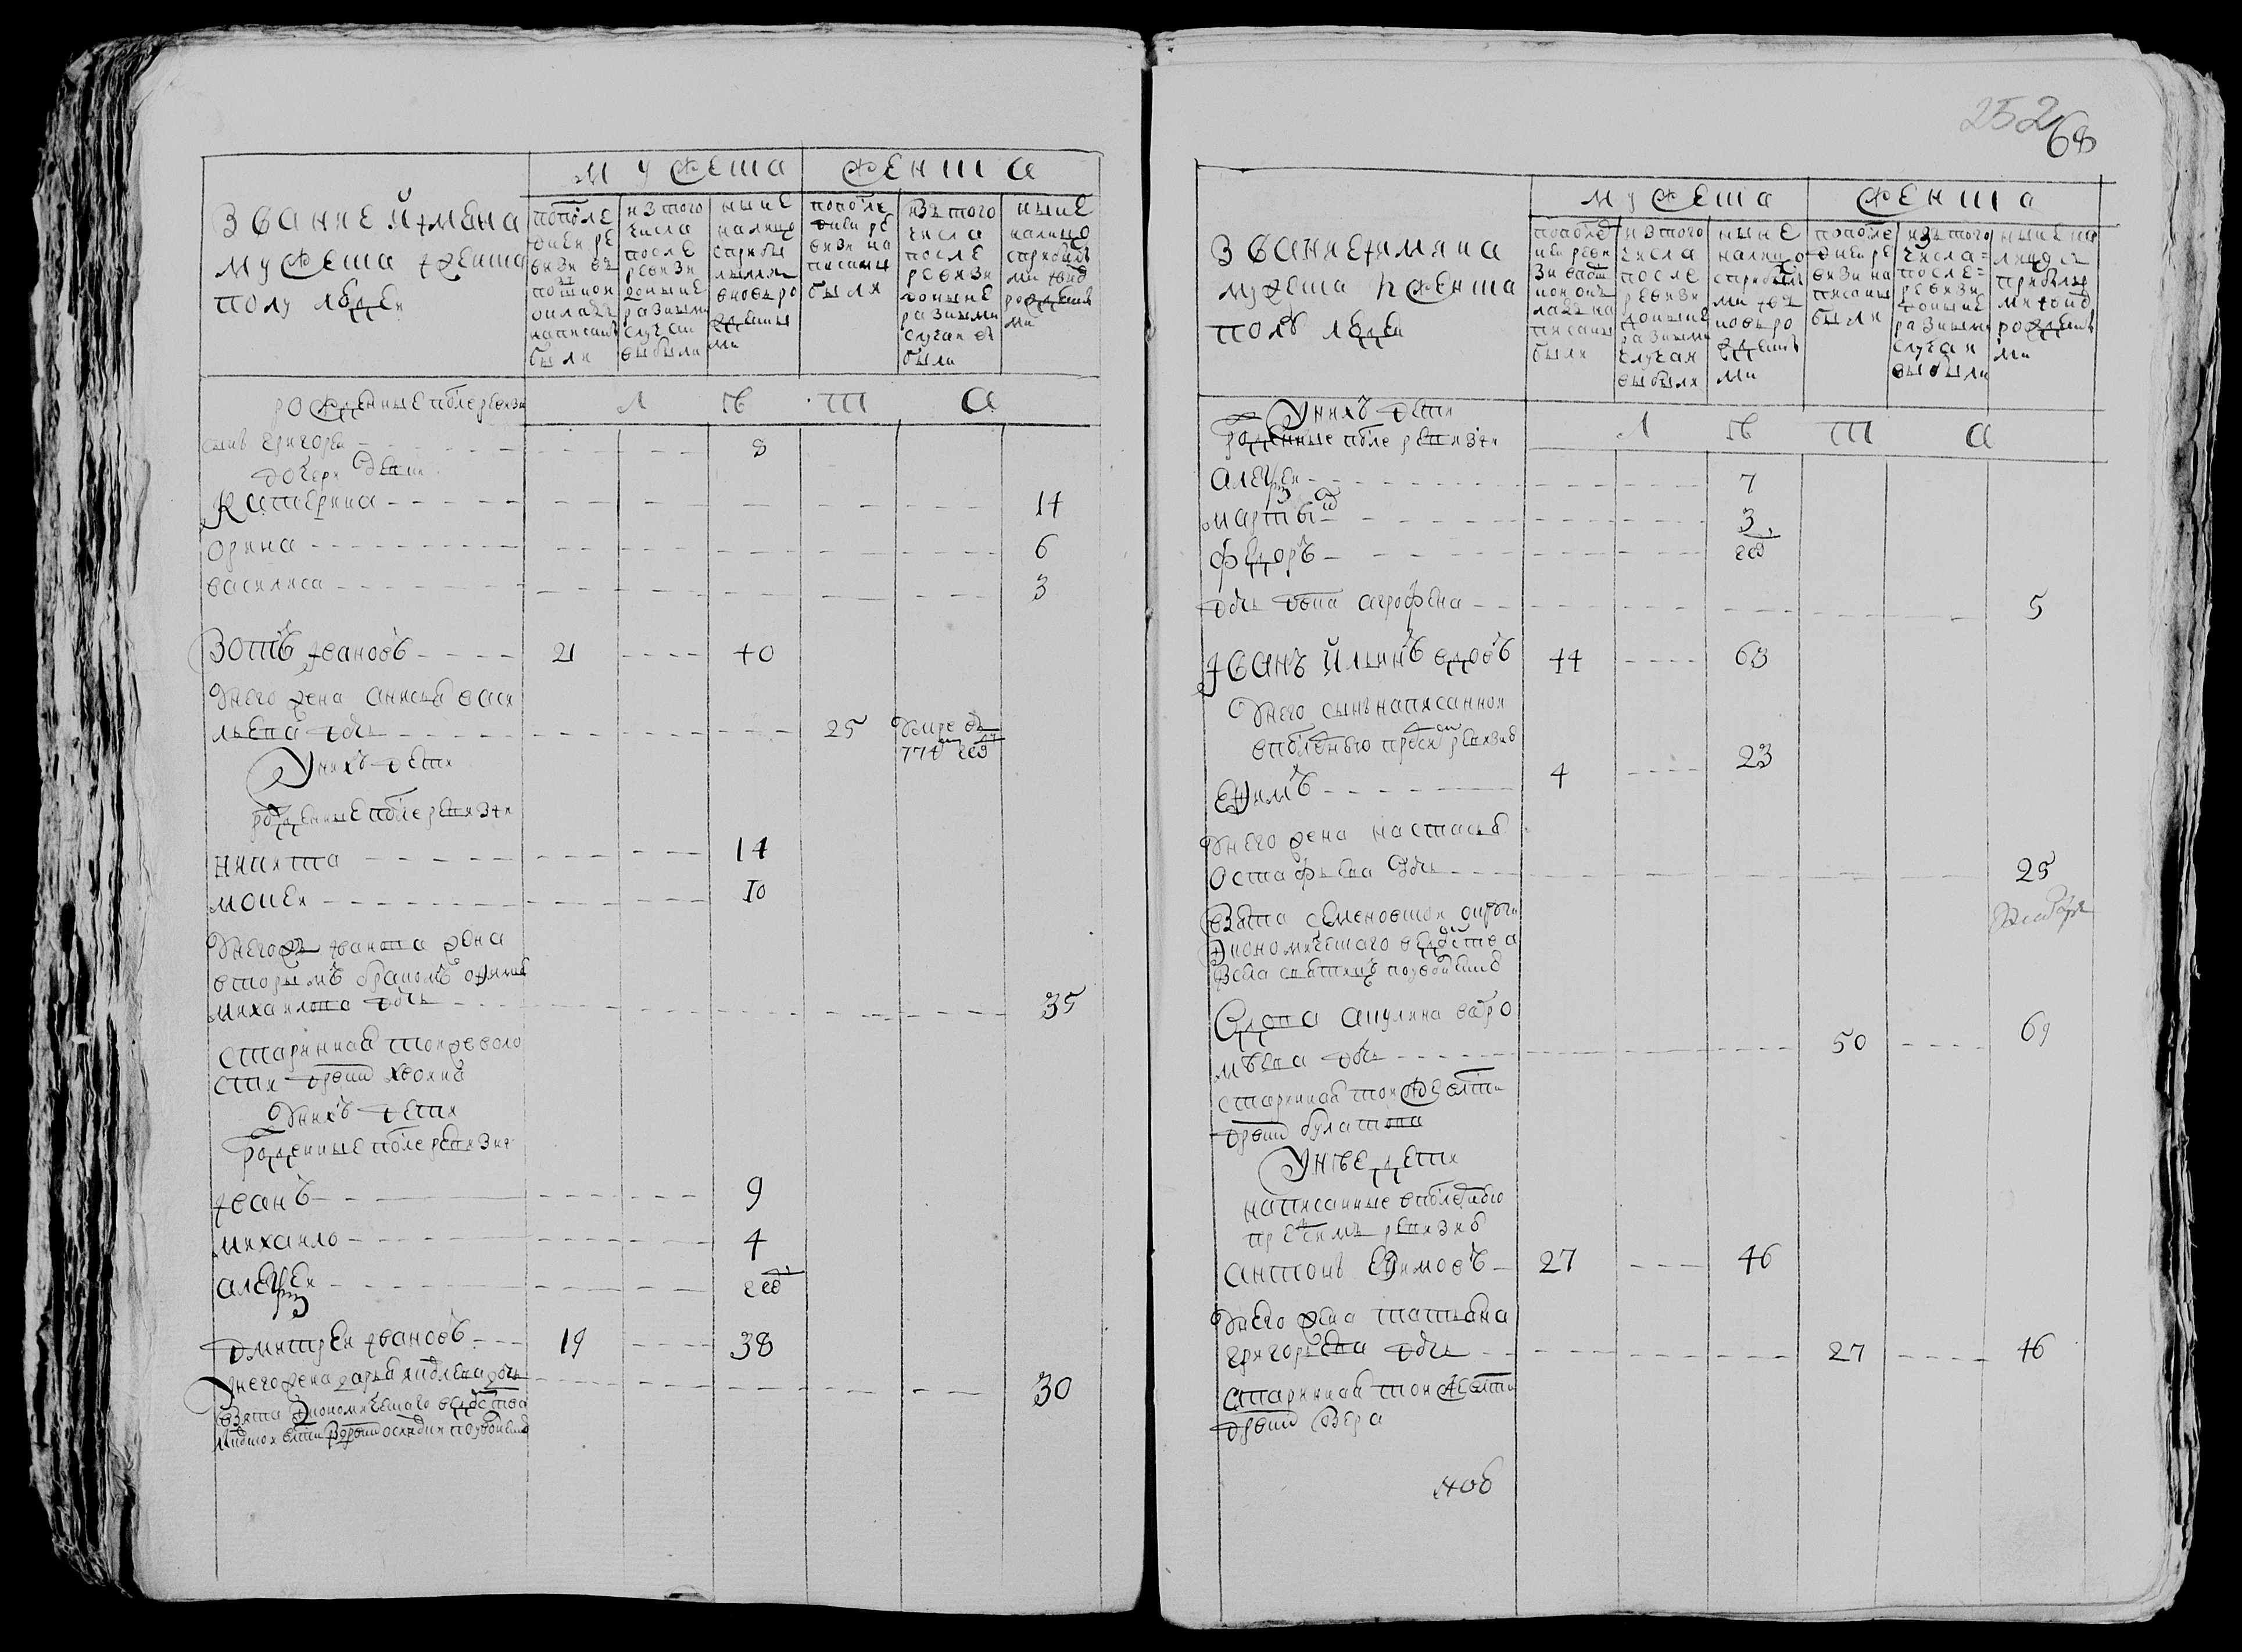 Звание и имена
мужеска и женска
полу людей
мужеска
женска
по после
дней ре
визи в
подушном
окладе
написаны
были
из того
числа
после
ревизи
доныне
разными
случаи
выбыли
ныне
налицо
с прибы
лыми
и вновь ро
жденны
ми
по после
дней ре
визи на
писаны
были
из того
числа
после
ревизи
доныне
разными
случаи вы
были
ныне
налицо
с прибыл
ми
рожденны
ми
рожденные после ревизи
л е т а
сын Григорей 8
дочери девки
Катерина 14
Орина 6
Василиса 3
Зотъ Ивановъ 21 40
У него жена Анисья Васи
льева дочь 25 умре в
774 году
У нихъ дети
рожденные после ревизии
Никита 14
Мокей 10
У него Иванова жена
вторымъ бракомъ Офимья
Михайлова дочь 35
старинная той же воло
сти деревни
У нихъ дети
рожденные после ревизии
Иванъ 9
Михайло 4
Алексей год
Дмитрей Ивановъ 19 38
У него жена Дарья Яковлева дочь 30
взята экономического ведомства
252
68
Звание и имяна
мужеска и женска
полу людей
мужеска
женска
по после
дней реви
зи в
подуш
ном ок
ладе на
писаны
были
из того
числа
после
ревизи
доныне
разными
случаи
выбыли
ныне
налицо
с прибылы
ми и
вновь ро
жденны
ми
по после
дней ре
визи на
писаны
были
из того
числа
после
ревизи
доныне
разными
случаи
выбыли
ныне на
лицо с
прибылы
ми
рожденны
ми
У нихъ дети
рожденные после ревизии
л е т а
Алексей 7
Мартын 3
Федоръ год
дочь девка Агрофена 5
Иванъ Ильинъ вдовъ 44 63
У него сынъ написанной
в последнюю пред сим ревизию
Ефимъ 4 23
У него жена Настасья
Остафьева дочь 25
взята Семеновской округи
экономического ведомства
Вдова Акулина
дочь 50 69
старинная той же волости
деревни Булатова
У нее дети
написанные в последнюю
пред симъ ревизию
Антонъ Ефимовъ 27 46
У него жена Татьяна
Григорьева дочь 27 46
старинная той же волости
деревни